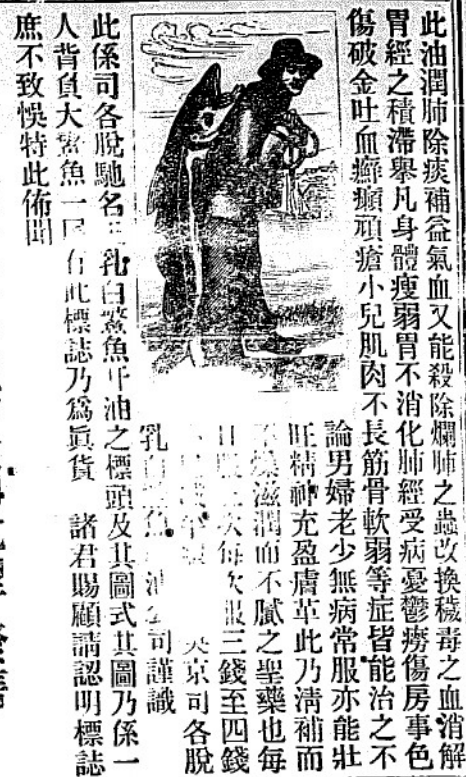 此油潤肺除痰補益氣血又能殺除爛肺之蟲改換穢毒之血消解
胃經之積滯舉凡身體瘦弱胃不消化肺經受病憂鬱癆傷房事色
傷破金吐血癬癩頑瘡小兒肌肉不長筋骨軟弱等症皆能治之不
論男婦老少無病常服亦能壯
旺精神充盈膚革此乃清補而
不燥滋潤而不膩之聖藥也每
日服三次每次服三錢至四錢
英京司各脫
乳白魚油公司謹識
此係司各脫馳名乳白鰵魚肝油之標頭及其圖式其圖乃係一
人背負大鰵魚一尾有此標誌乃為眞貨 諸君賜顧請認明標誌
庶不致悞特此佈聞